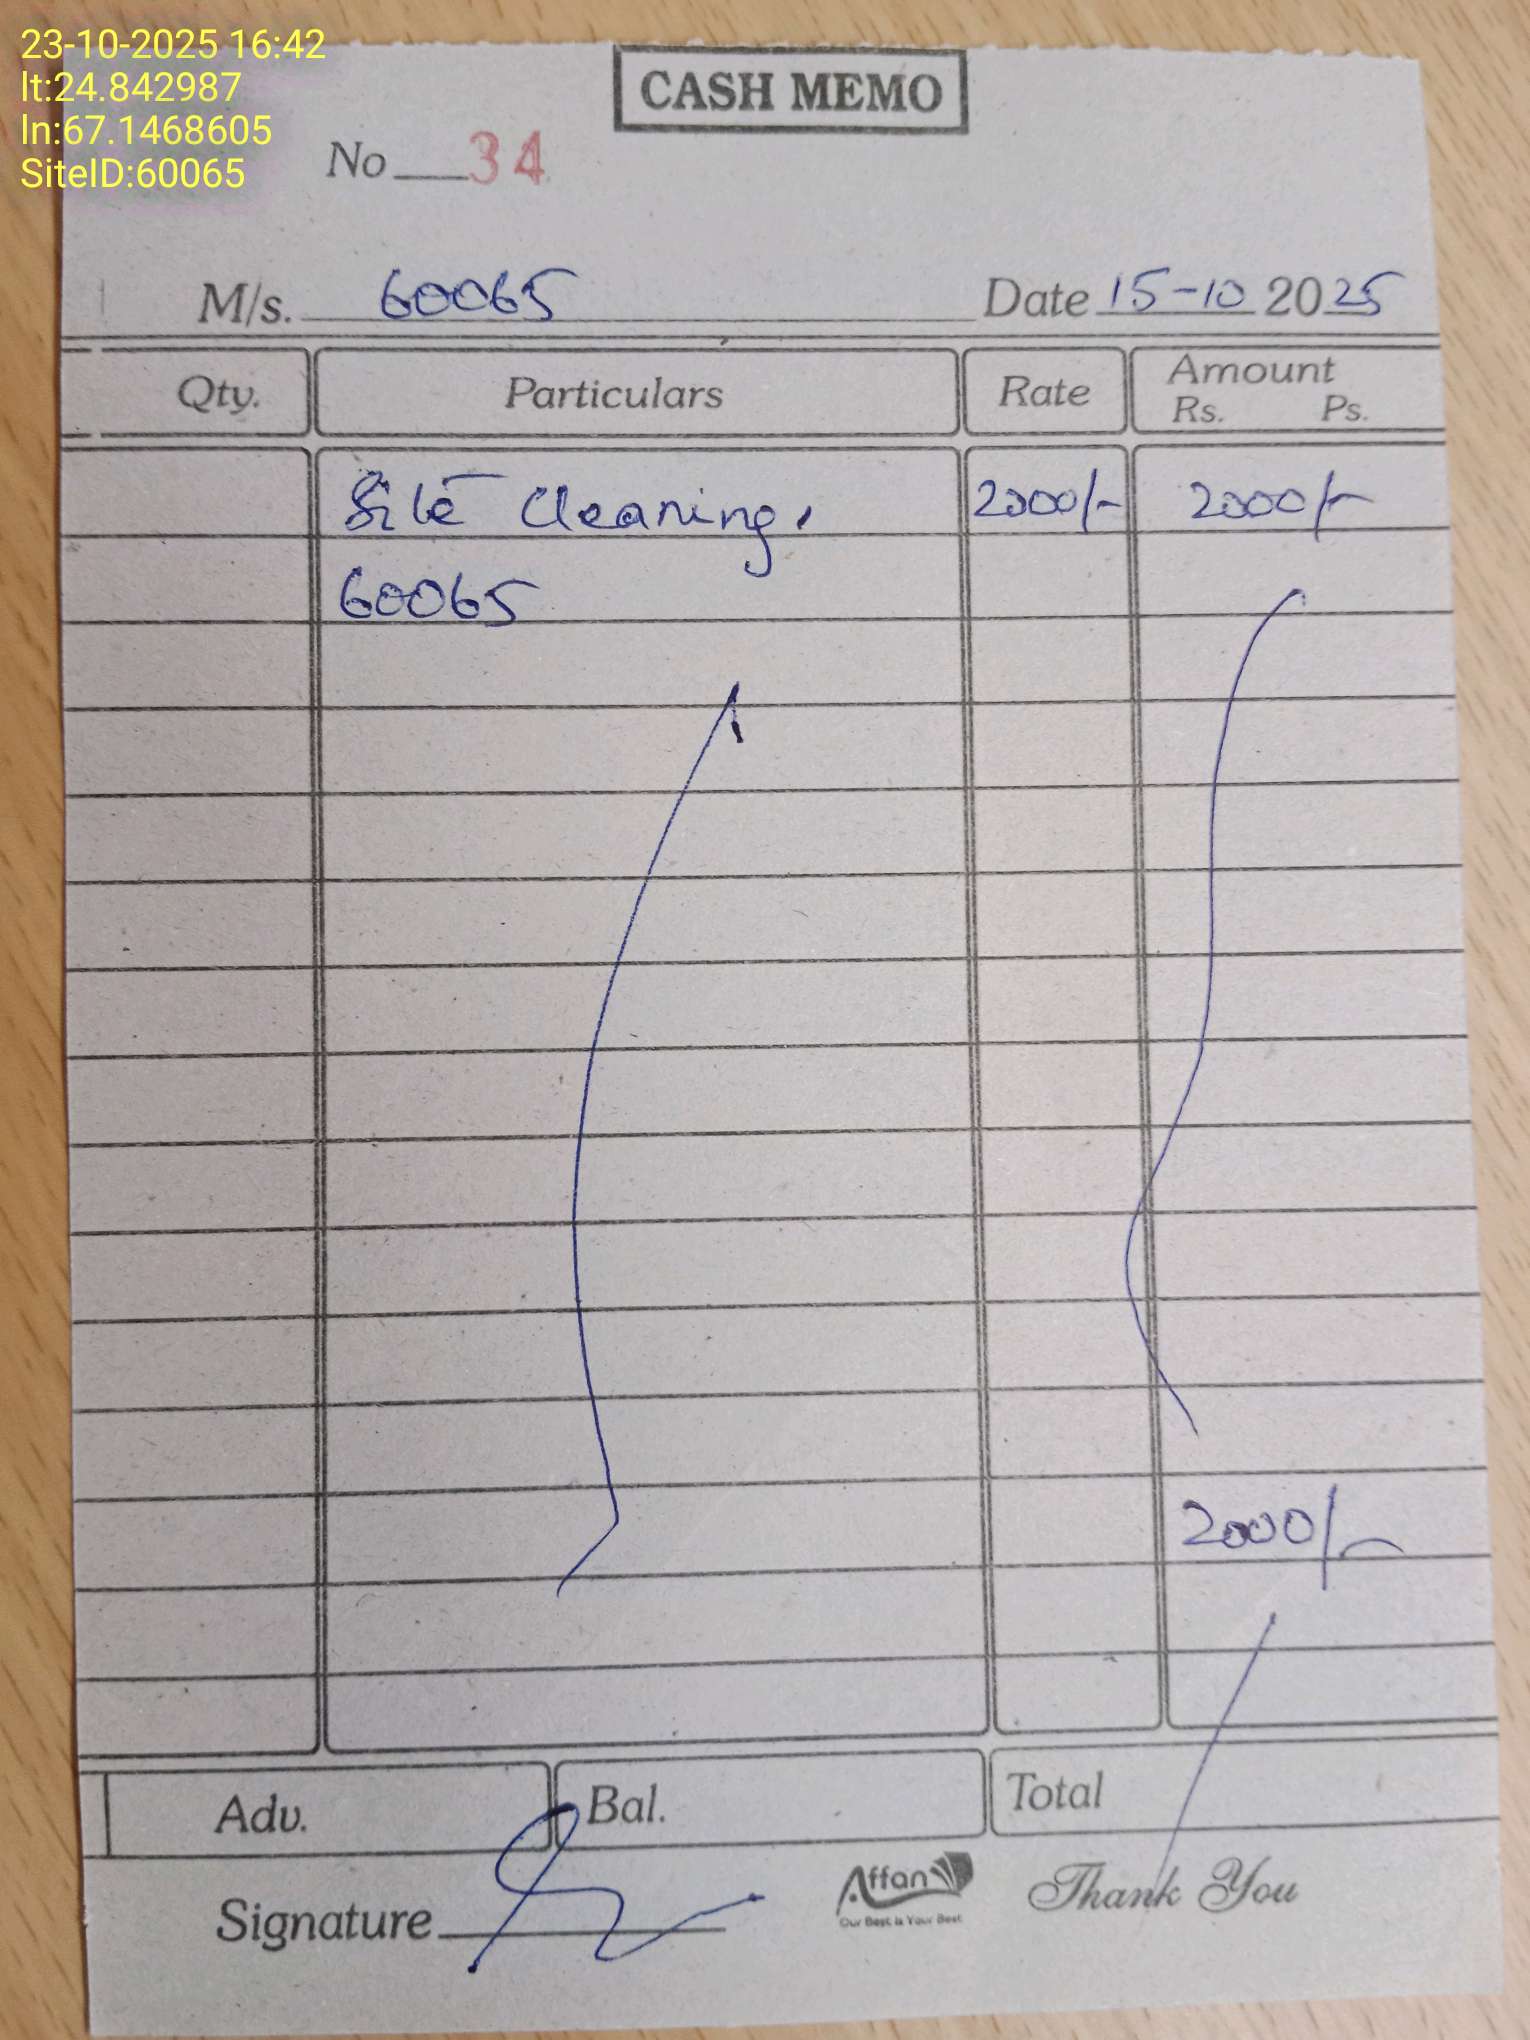 23-10-2025 16:42
lt:24.842987
ln:67.1468605
SiteID:60065
CASH MEMO
No 34
M/s. 60065 Date 15-10 2025
Qty. Particulars Rate Amount
Rs. Ps.
Site Cleaning. 2000/- 2000/-
60065
2000/-
Adv. Bal. Total
Signature
Affan
Our Best is Your Best
Thank You